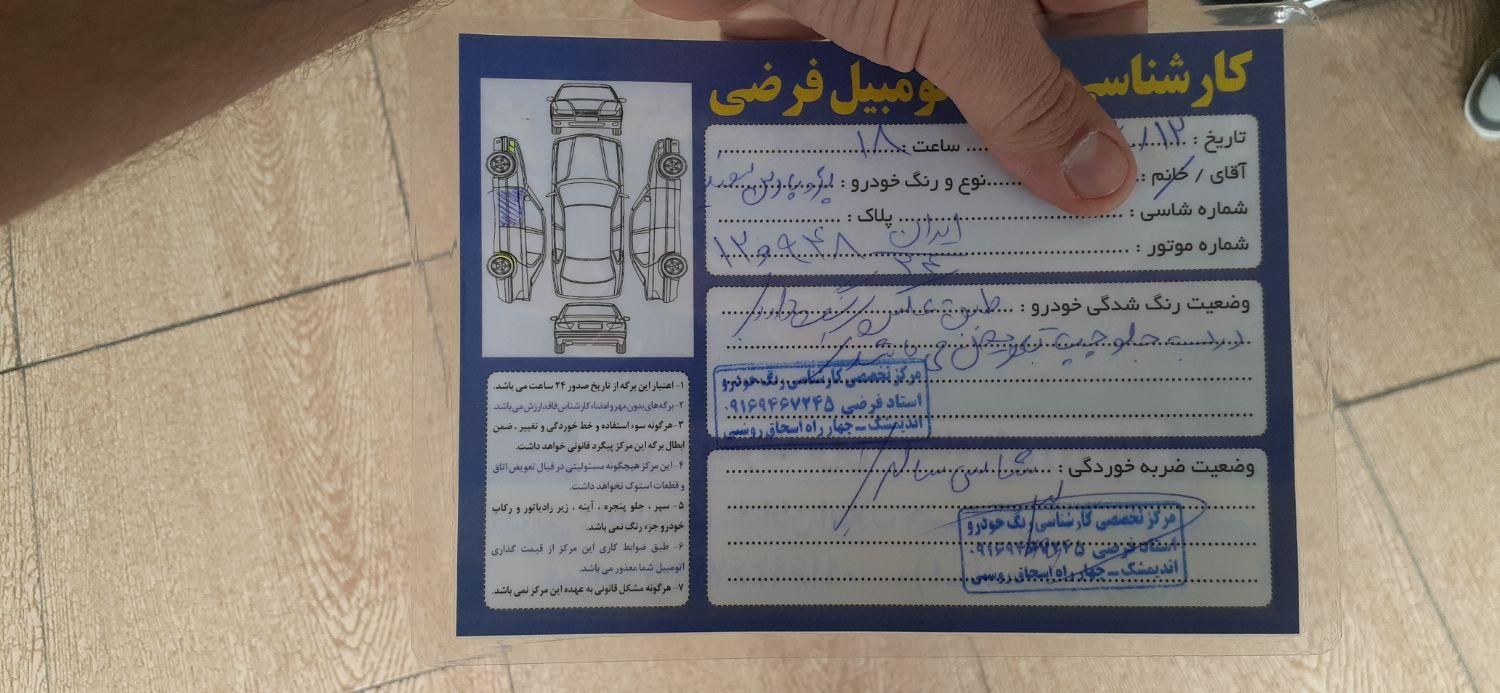 کارشناسی ومبیل فرضی
تاریخ : ۱۲/ ساعت : ۱۸
آقای / خانم : نوع و رنگ خودرو : پژو پارس سفید
شماره شاسی : پلاک : ایران
شماره موتور : ۲۴
وضعیت رنگ شدگی خودرو : طبق عکس
درب جلو چپ تعویض می باشد
مرکز تخصصی کارشناسی رنگ خودرو
استاد فرضی ۰۹۱۶۹۴۶۷۲۴۵
اندیمشک - چهارراه اسحاق روسی
وضعیت ضربه خوردگی : شاسی سالم
مرکز تخصصی کارشناسی رنگ خودرو
استاد فرضی ۰۹۱۶۹۴۶۷۲۴۵
اندیمشک - چهارراه اسحاق روسی
۱- اعتبار این برگه از تاریخ صدور ۲۴ ساعت می باشد.
۲- برگه های بدون مهر و امضاء کارشناس فاقد ارزش می باشد.
۳- هرگونه سوء استفاده و خط خوردگی و تغییر ، ضمن
ابطال برگه این مرکز پیگرد قانونی خواهد داشت.
۴- این مرکز هیچگونه مسئولیتی در قبال تعویض اتاق
و قطعات استوک نخواهد داشت.
۵- سپر ، جلو پنجره ، آینه ، زیر رادیاتور و رکاب
خودرو جزء رنگ نمی باشد.
۶- طبق ضوابط کاری این مرکز از قیمت گذاری
اتومبیل شما معذور می باشد.
۷- هرگونه مشکل قانونی به عهده این مرکز نمی باشد.